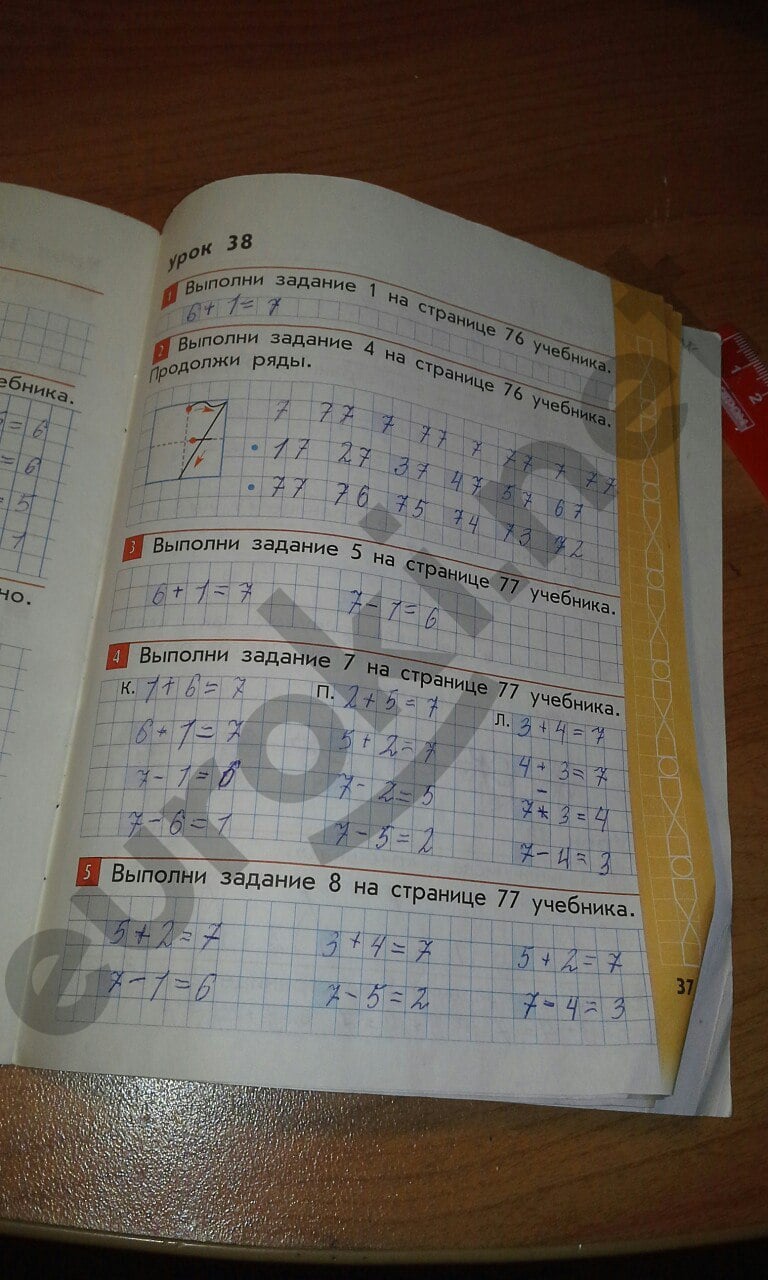 ебника.
= 6
= 6
= 5
1
но.
Урок 38
1 Выполни задание 1 на странице 76 учебника.
6 + 1 = 7
2 Выполни задание 4 на странице 76 учебника.
Продолжи ряды.
7 77 7 77 7 77 7 77
• 17 27 37 47 57 67
• 77 76 75 74 73 72
3 Выполни задание 5 на странице 77 учебника.
6 + 1 = 7 7 - 1 = 6
4 Выполни задание 7 на странице 77 учебника.
К. 1 + 6 = 7 П. 2 + 5 = 7 Л. 3 + 4 = 7
6 + 1 = 7 5 + 2 = 7 4 + 3 = 7
7 - 1 = 6 7 - 2 = 5 7 - 3 = 4
7 - 6 = 1 7 - 5 = 2 7 - 4 = 3
5 Выполни задание 8 на странице 77 учебника.
5 + 2 = 7 3 + 4 = 7 5 + 2 = 7
7 - 1 = 6 7 - 5 = 2 7 - 4 = 3
37
1 2
euroki.net